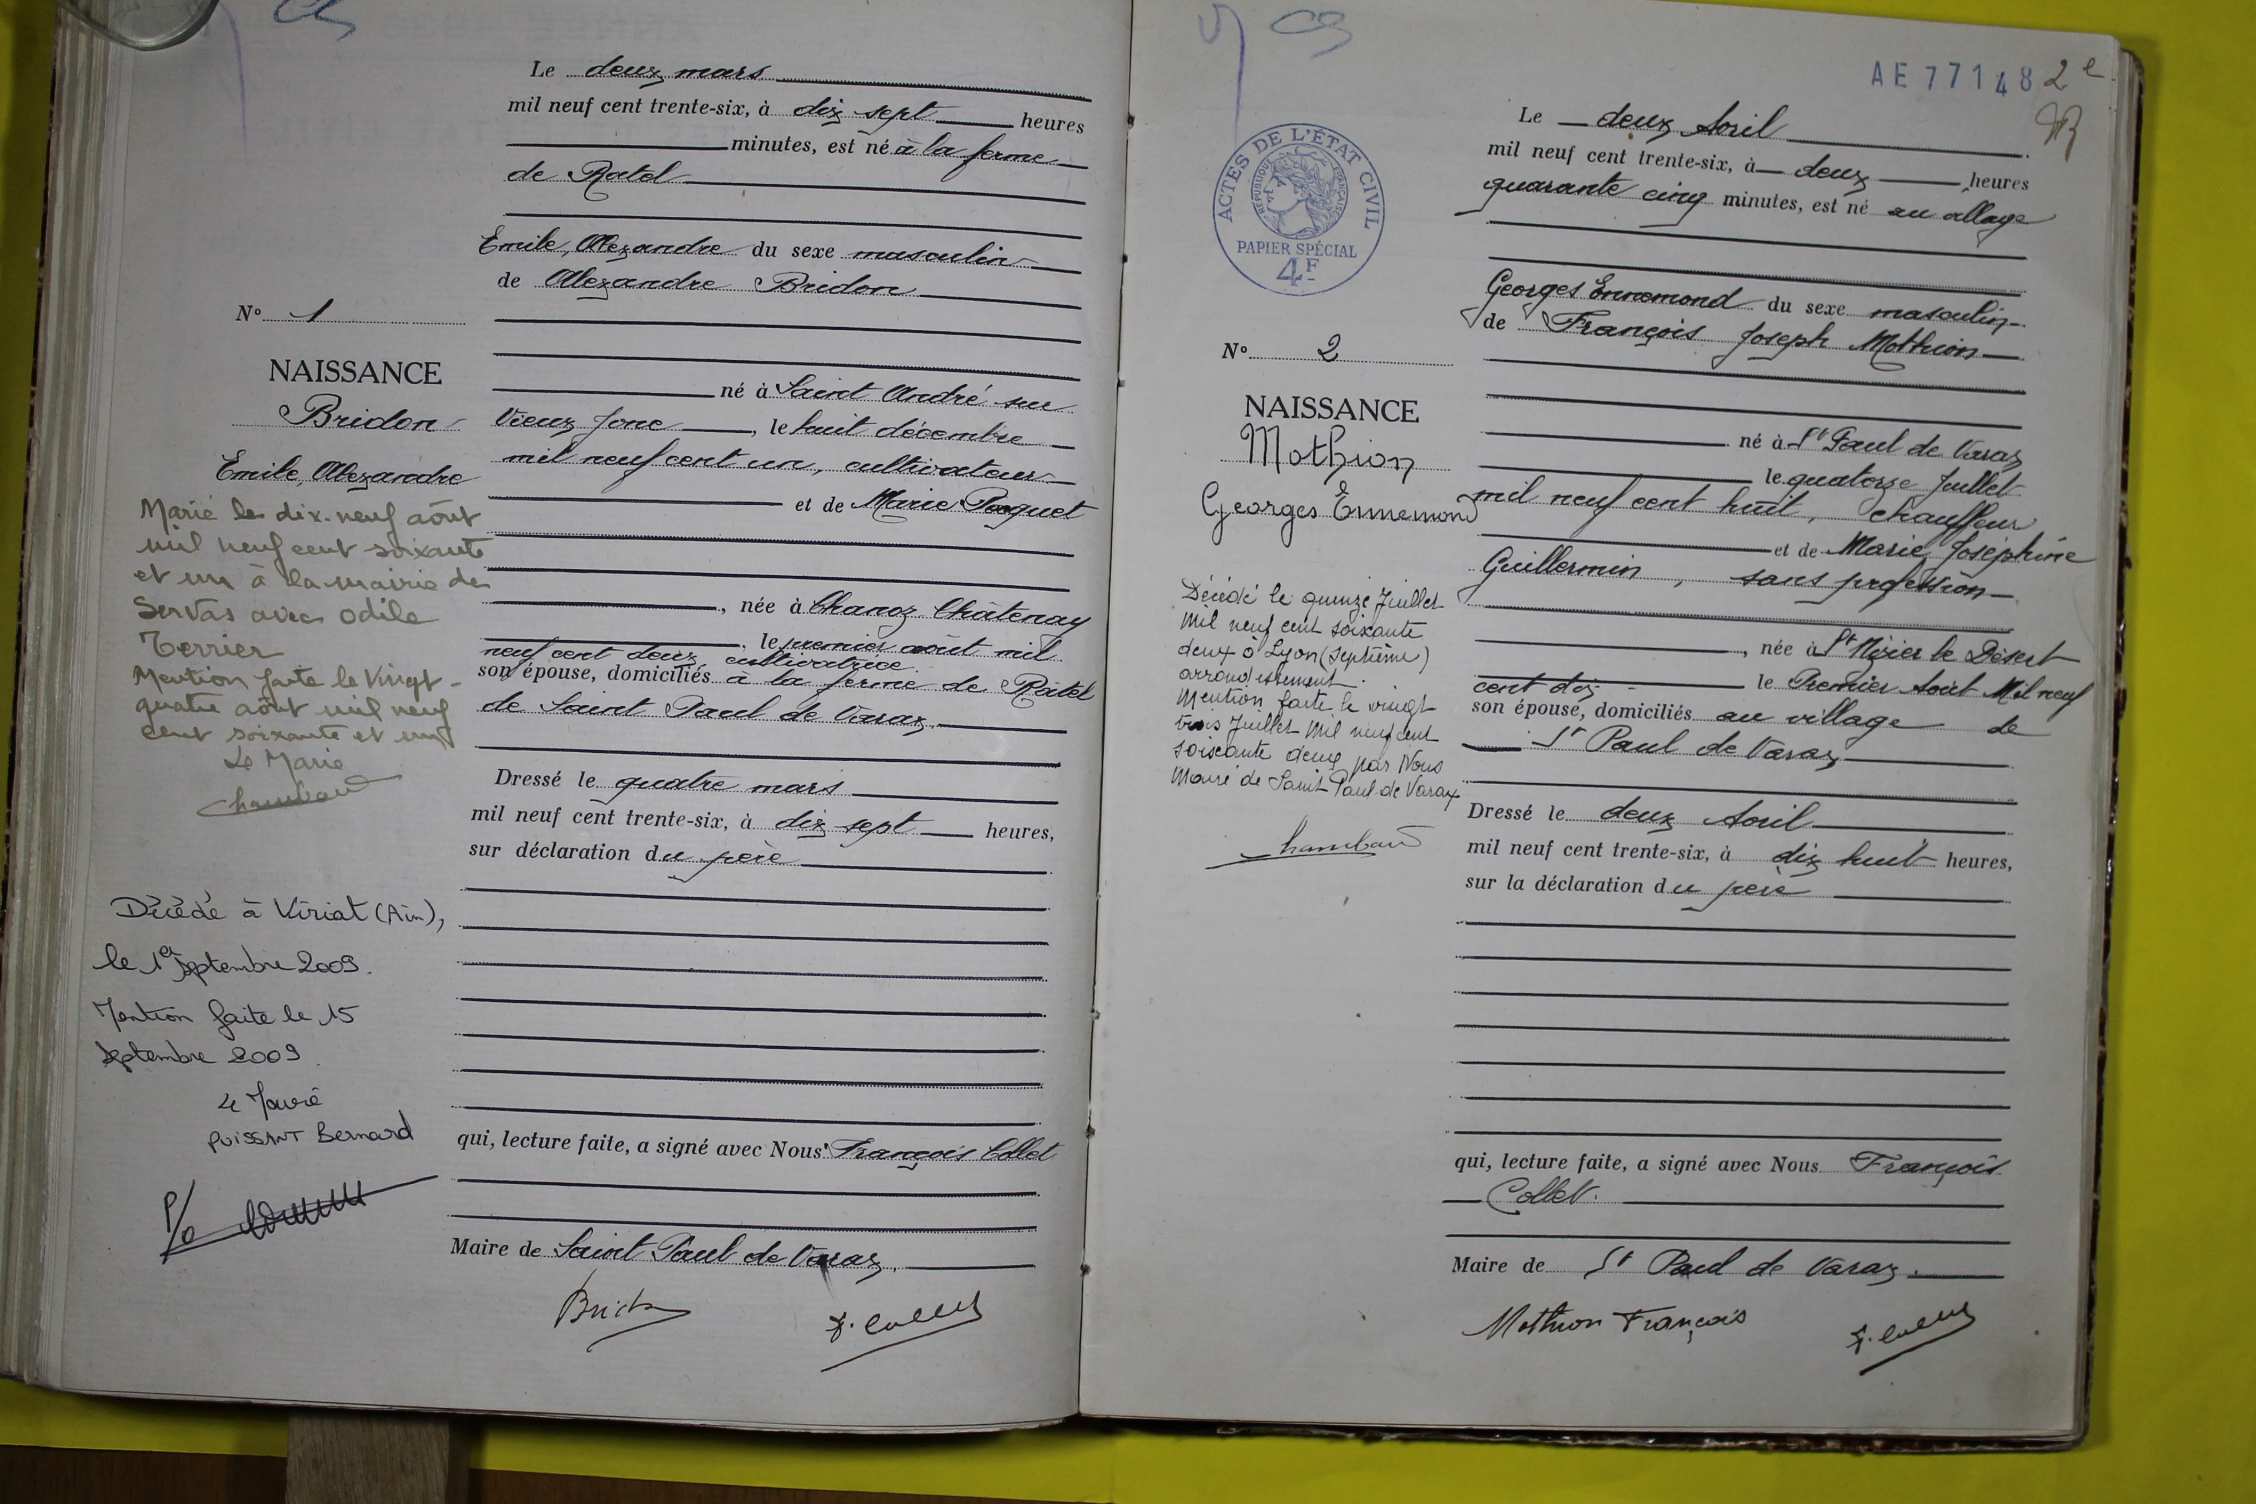 Le deux mars
mil neuf cent trente-six, à dix sept heures
minutes, est né à la ferme
de Ratel
Emile, Alexandre du sexe masculin
de Alexandre Bridon
né à Saint André sur
Vieux Jonc, le huit décembre
mil neuf cent un, cultivateur
et de Marie Poquet
, née à Chanoz Châtenay
, le premier août mil
neuf cent deux cultivatrice
son épouse, domiciliés à la ferme de Ratel
de Saint Paul de Varax
Dressé le quatre mars
mil neuf cent trente-six, à dix sept heures,
sur déclaration du père
qui, lecture faite, a signé avec Nous François Collet
Maire de Saint Paul de Varax
Bridon
F. Collet
No 1
NAISSANCE
Bridon
Emile, Alexandre
Marié le dix-neuf août
mil neuf cent soixante
et un à la mairie de
Servas avec Odile
Terrier
Mention faite le vingt-
quatre août mil neuf
cent soixante et un
Le Maire
Chambaud
Décédé à Viriat (Ain),
le 1er septembre 2009.
Mention faite le 15
septembre 2009.
Le Maire
PUISSANT Bernard
P/o
AE 77148 2e
ACTES DE L'ÉTAT CIVIL
RÉPUBLIQUE FRANÇAISE
PAPIER SPÉCIAL
4F
Le deux Avril
mil neuf cent trente-six, à deux heures
quarante cinq minutes, est né au village
Georges Ennemond du sexe masculin
de François Joseph Mothion
né à St Paul de Varax
le quatorze Juillet
mil neuf cent huit, chauffeur
et de Marie Joséphine
Guillermin, sans profession
, née à St Nizier le Désert
le Premier Août Mil neuf
cent dix
son épouse, domiciliés au village de
St Paul de Varax
Dressé le deux Avril
mil neuf cent trente-six, à dix huit heures,
sur la déclaration du père
qui, lecture faite, a signé avec Nous François
Collet.
Maire de St Paul de Varax.
Mothion François
F. Collet
No 2
NAISSANCE
Mothion
Georges Ennemond
Décédé le quinze Juillet
mil neuf cent soixante
deux à Lyon (septième)
arrondissement.
Mention faite le vingt
trois Juillet mil neuf cent
soixante deux par Nous
Maire de Saint Paul de Varax
Chambaud